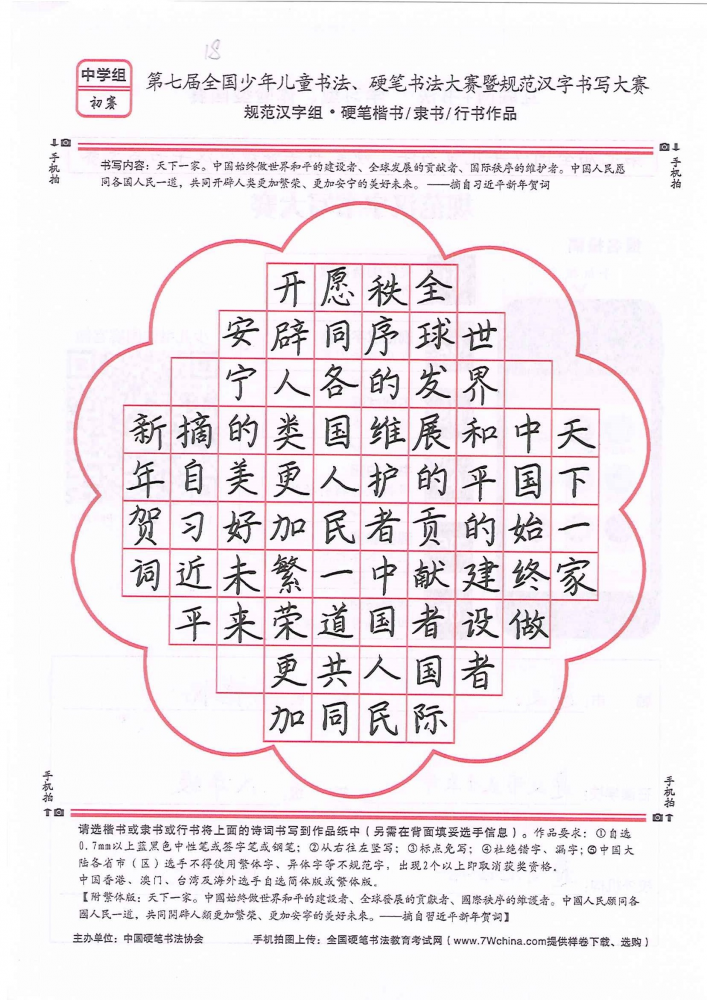 18
中学组
初赛
第七届全国少年儿童书法、硬笔书法大赛暨规范汉字书写大赛
规范汉字组·硬笔楷书/隶书/行书作品
手机拍
手机拍
书写内容：天下一家。中国始终做世界和平的建设者、全球发展的贡献者、国际秩序的维护者。中国人民愿
同各国人民一道，共同开辟人类更加繁荣、更加安宁的美好未来。——摘自习近平新年贺词
天下一家
中国始终做
世界和平的建设者
全球发展的贡献者国际
秩序的维护者中国人民
愿同各国人民一道共同
开辟人类更加繁荣更加
安宁的美好未来
摘自习近平
新年贺词
手机拍
手机拍
请选楷书或隶书或行书将上面的诗词书写到作品纸中（另需在背面填妥选手信息）。作品要求：①自选
0.7mm以上蓝黑色中性笔或签字笔或钢笔；②从右往左竖写；③标点免写；④杜绝错字、漏字；⑤中国大
陆各省市（区）选手不得使用繁体字、异体字等不规范字，出现2个以上即取消获奖资格。
中国香港、澳门、台湾及海外选手自选简体版或繁体版。
【附繁体版：天下一家。中國始終做世界和平的建設者、全球發展的貢獻者、國際秩序的維護者。中國人民願同各
國人民一道，共同開辟人類更加繁榮、更加安寧的美好未來。——摘自習近平新年賀詞】
主办单位：中国硬笔书法协会
手机拍图上传：全国硬笔书法教育考试网（www.7Wchina.com提供样卷下载、选购）